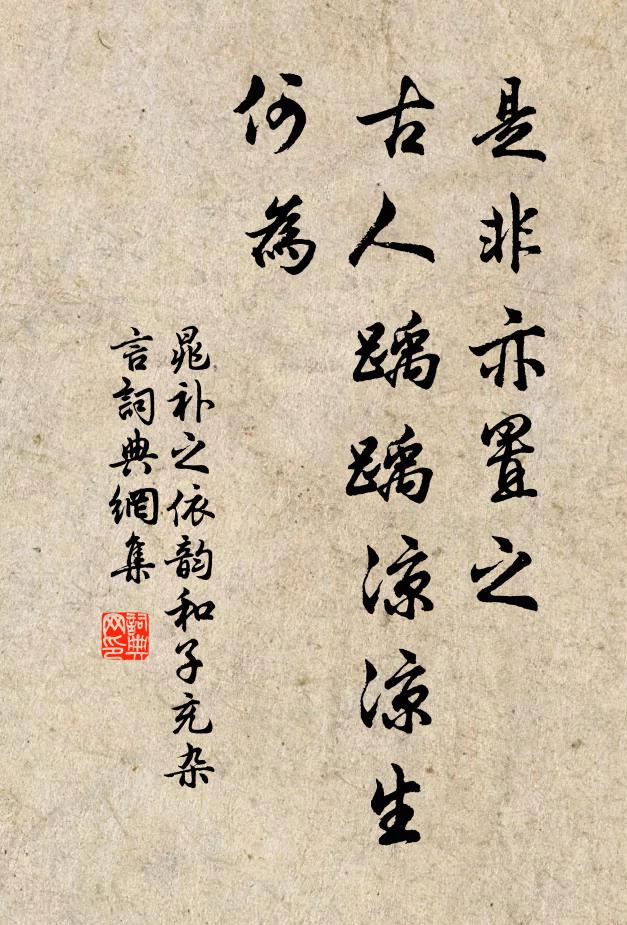 是非亦置之
古人踽踽凉凉生
何為
晁补之依韵和子充杂
言詞典網集
詞典
网印